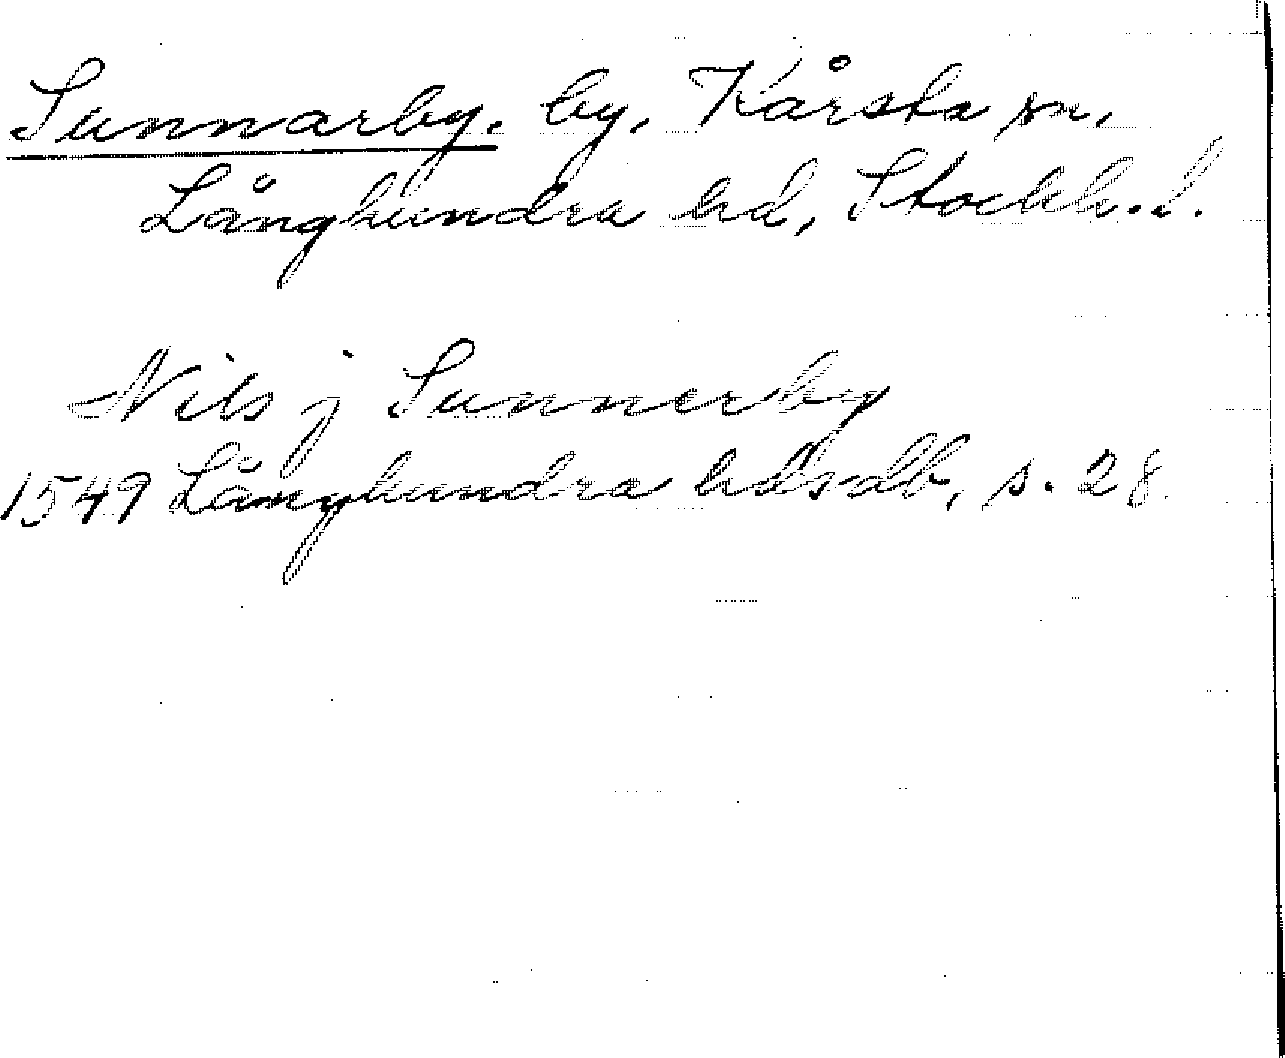 Sunnarby. by, Kårsta sn,
Långhundra hd, Stockh. l.
Nils j Sunnerby
1549 Långhundra hdsdb, s. 28.